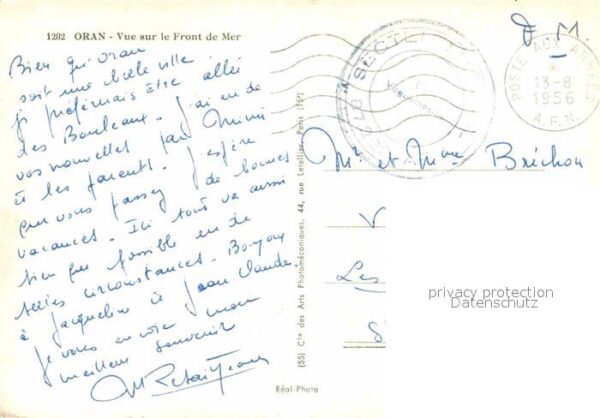 1282 ORAN - Vue sur le Front de Mer
Bien qu'Oran
soit une belle ville
je préférerais être allée
des Bouleaux. J'ai eu de
vos nouvelles par Mimi
et les parents. J'espère
que vous passez de bonnes
vacances. Ici tout va aussi
bien que possible en de
telles circonstances. Bonjour
à Jacqueline et Jean Claude.
Je vous envoie mon
meilleur souvenir
(55) Cie des Arts Photomécaniques, 44, rue Letellier, Paris (15e)
Réal-Photo
F. M.
SECTEUR
Vaguemestre
POSTE AUX ARMEES
13-8
1956
A.F.N.
Mr et Mme Bréchon
V
Les
S
privacy protection
Datenschutz